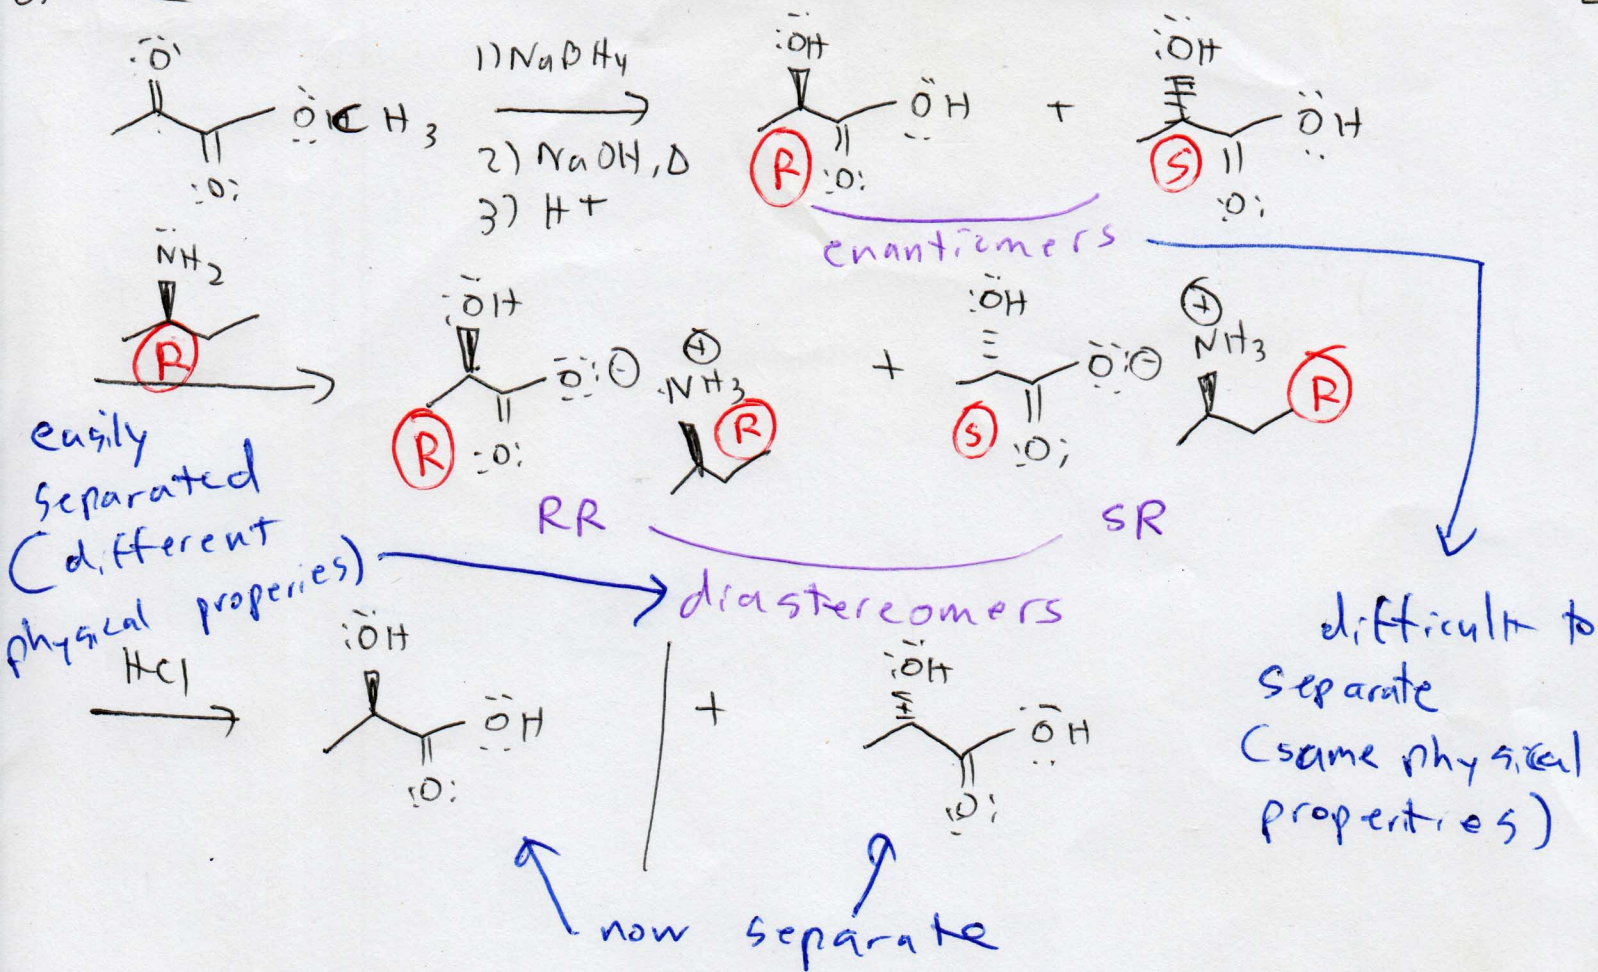 :Ö
ÖCH3
:O:
1) NaBH4
2) NaOH, Δ
3) H+
:ÖH
ÖH
R
:O:
+
:ÖH
ÖH
S
:O:
enantiomers
N̈H2
R
:ÖH
Ö:⊖
⊕
NH3
R
:O:
R
+
:ÖH
Ö:⊖
⊕
NH3
S
:O:
R
easily
separated
(different
physical properies)
RR
SR
diastereomers
difficult to
separate
(same physical
properties)
HCl
:ÖH
ÖH
:O:
+
:ÖH
ÖH
:O:
now separate